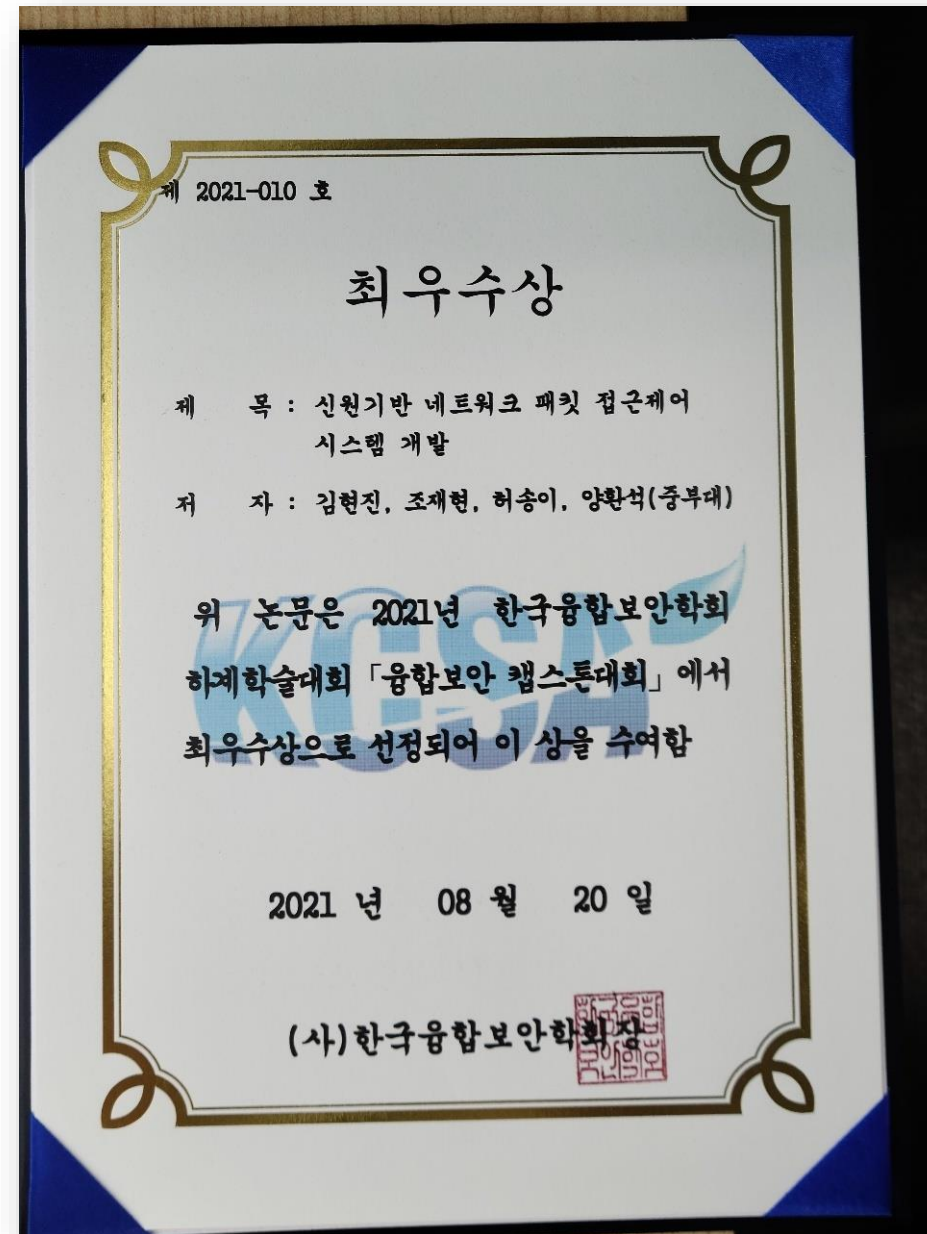 제 2021-010 호
최우수상
제 목 : 신원기반 네트워크 패킷 접근제어
시스템 개발
저 자 : 김현진, 조재현, 허송이, 양환석(중부대)
KCSA
위 논문은 2021년 한국융합보안학회
하계학술대회 「융합보안 캡스톤대회」에서
최우수상으로 선정되어 이 상을 수여함
2021 년 08 월 20 일
(사)한국융합보안학회장